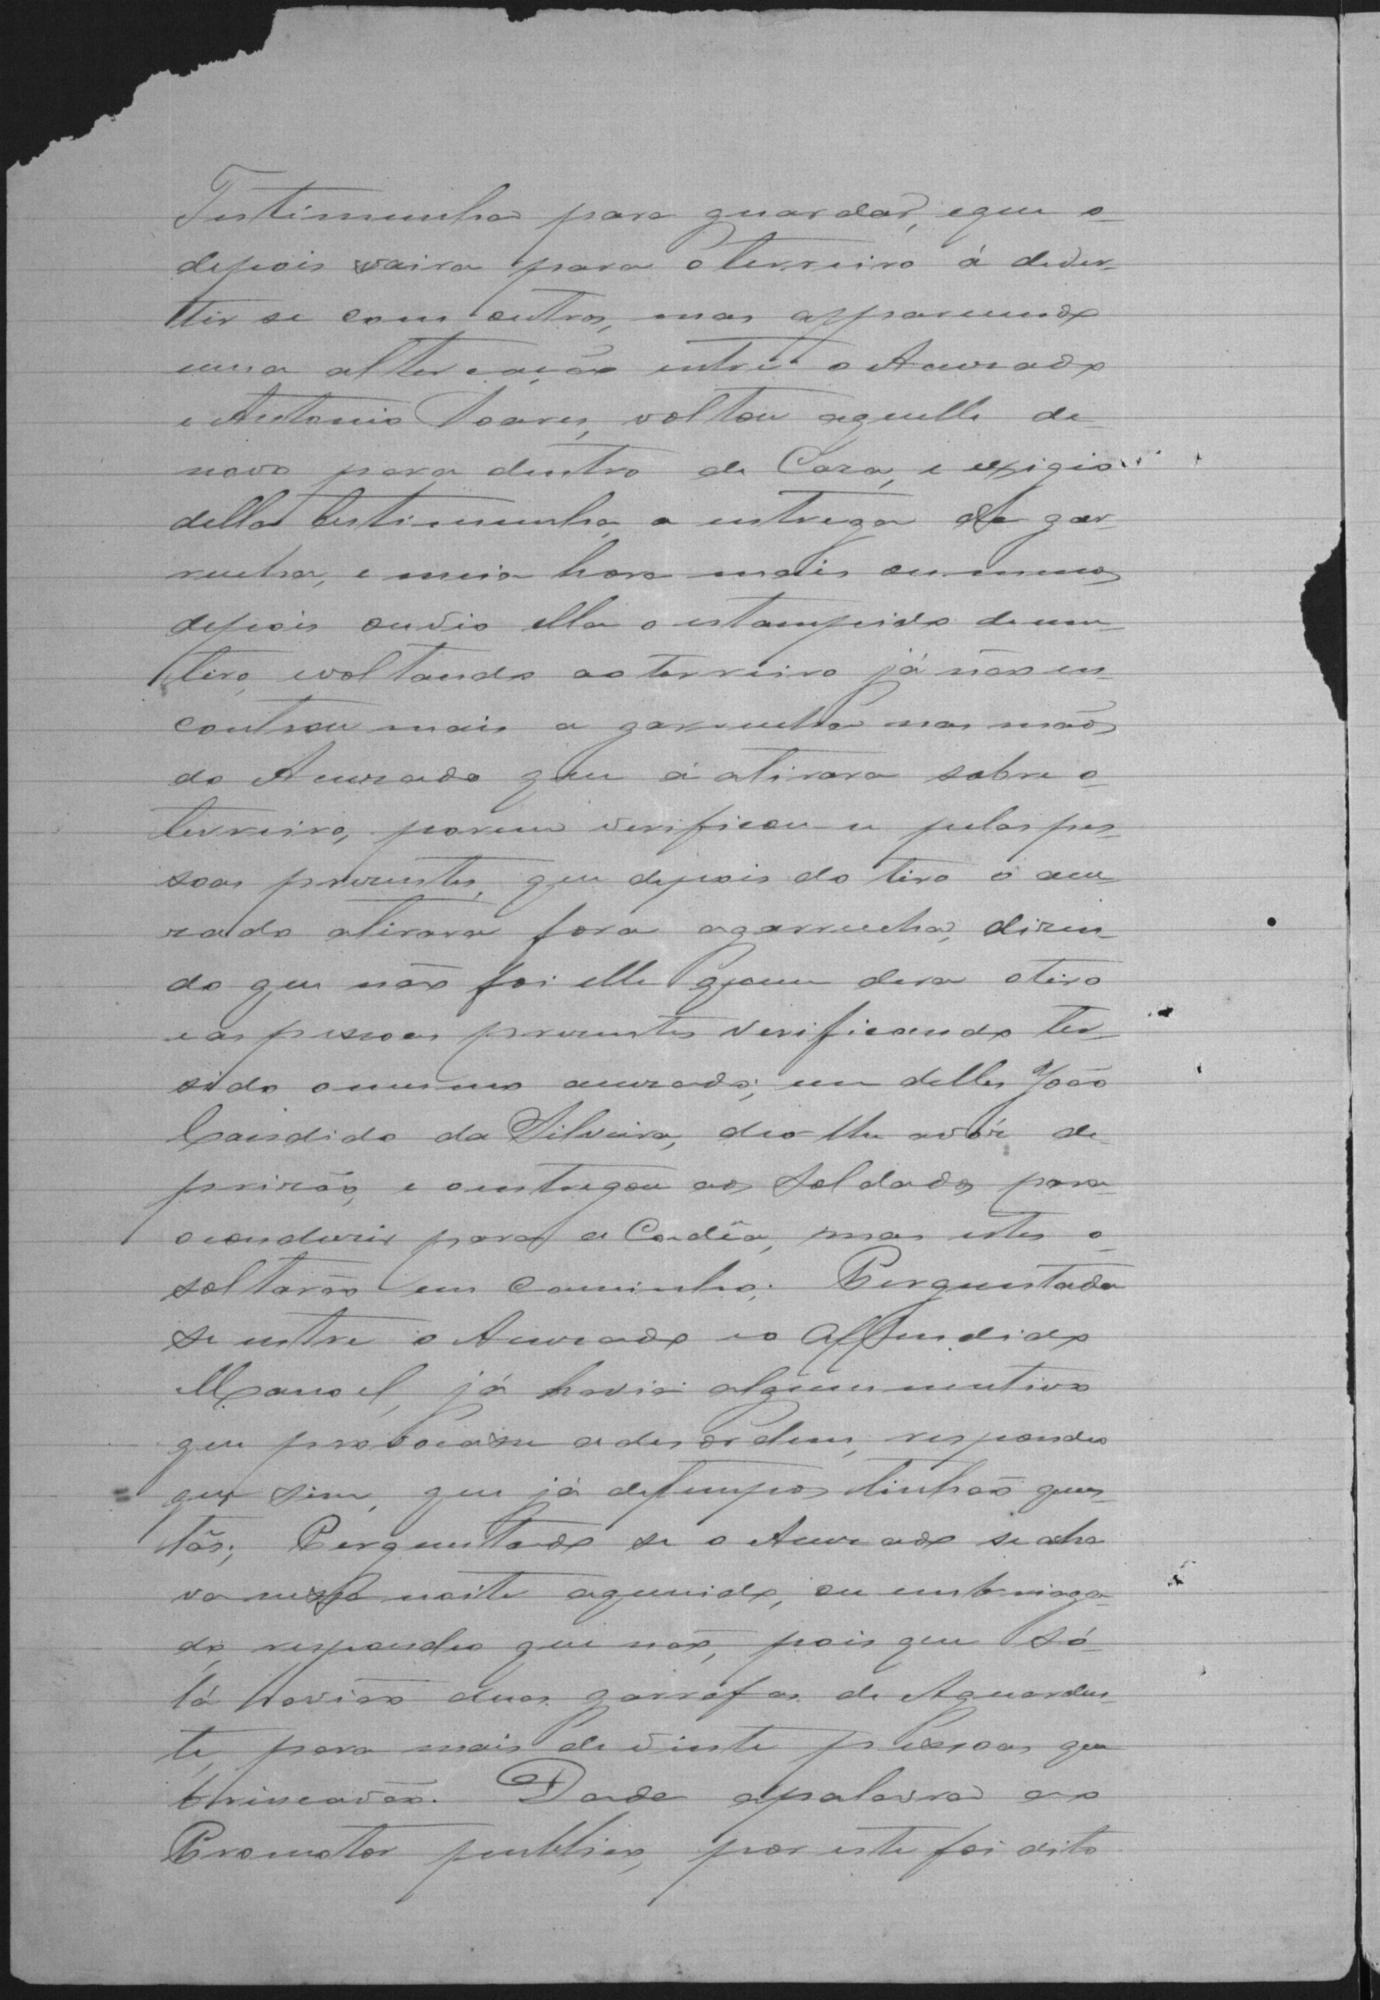 Testimunha para guardar, eque o
depois saira para o terreiro á diver-
tir se com outros, mas apparecendo
uma altercação entre o Accusado
e Antonio Soares, voltou aquelle de
novo para dentro de Caza, e exigio
della testimunha a entrega da gar-
rucha, e meia hora mais ou menos
depois ouvio ella o estampido de um
tiro, evoltando ao terreiro já não en-
controu mais a garrucha nas mãos
do Accuzado que a atirara sobre o
terreiro, porem verificou-se pelas pes-
soas prezentes, que depois do tiro o accu-
zado atirara fora agarrucha, dizen-
do que não foi elle quem dera otiro
eas pessoas prezentes verificando ter
sido omesmo accuzado; um delles João
Candido da Silveira, deo-lhe avóz de
prizão, e oentregou aos Soldados para
oconduzir para a Cadêa, mas estes o
soltarão em Caminho. Perguntada
se entre o Accuzado eo Offendido
Manoel, já havia algum mutivo
que provocasse adesordem, respondeo
que sim, que já detempos tinhão ques-
tão; Perguntado se o Accuzado se acha
va nessa noite aguuido, ou embriaga-
do, respondeo que não, pois que só
lá havião duas garrafas de Aguarden-
te, para mais de vinte pessoas que
brincavão. Dada apalavra ao
Promotor publico, por este foi dito